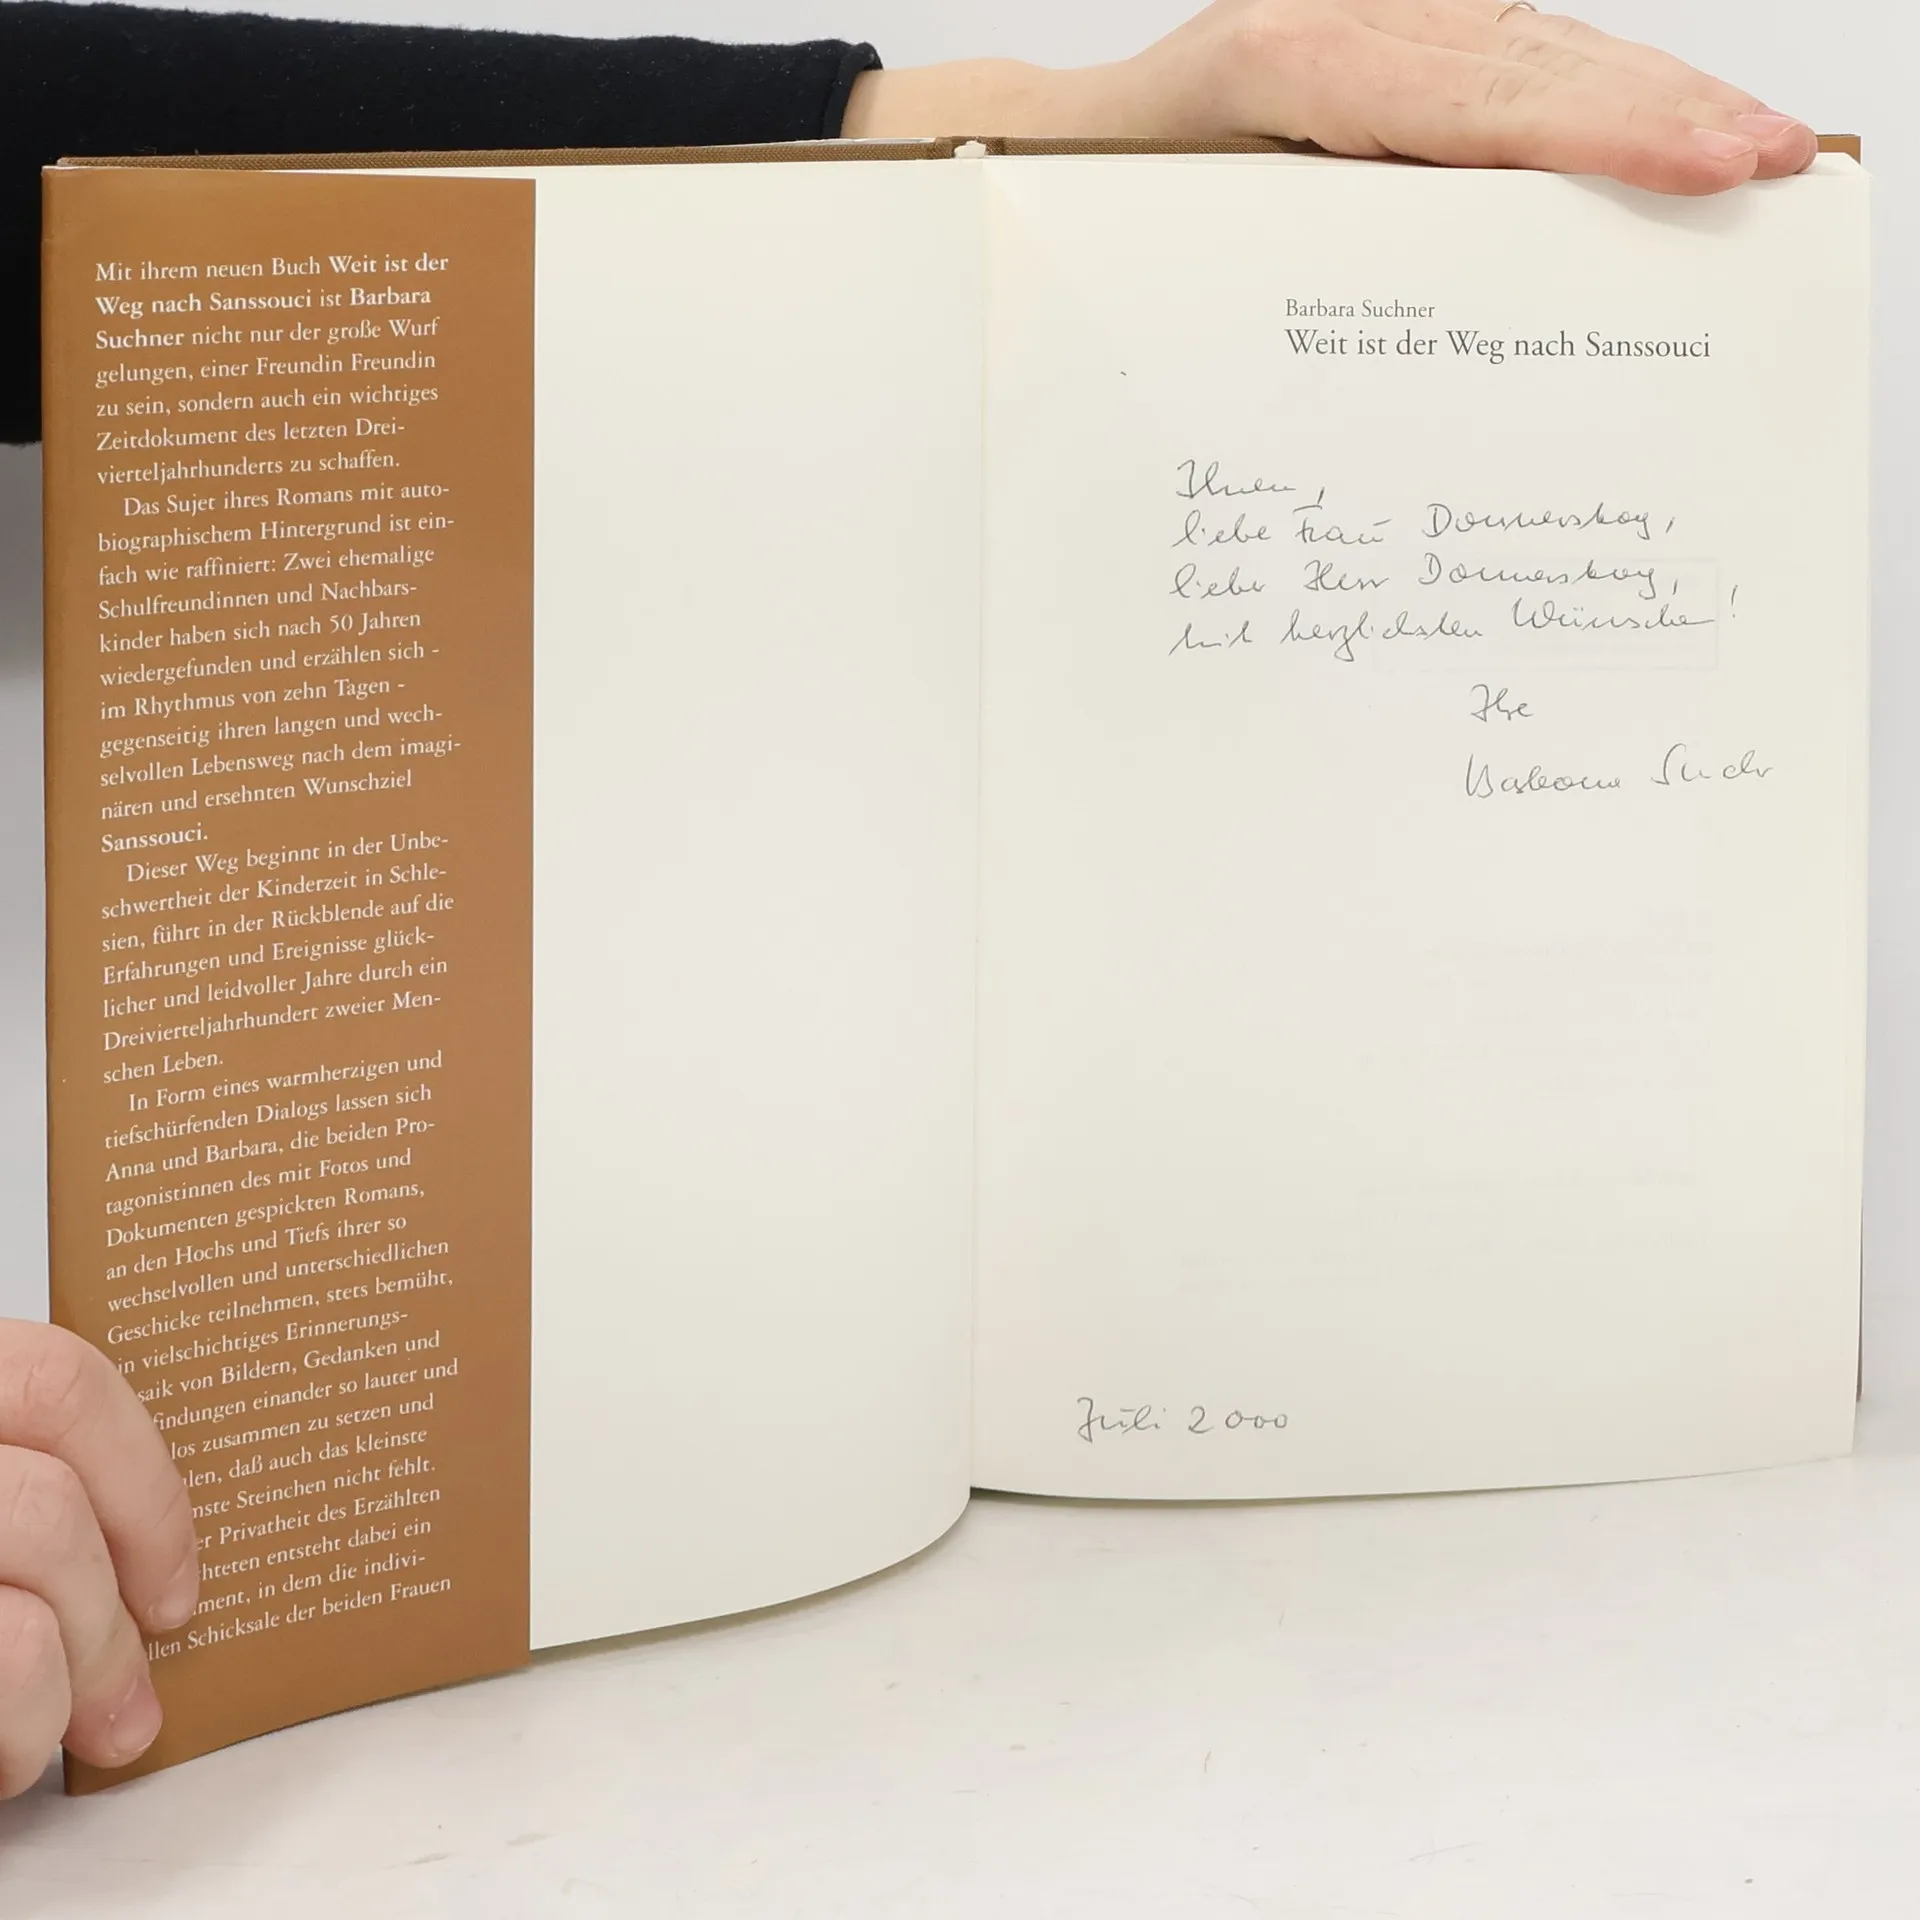 Mit ihrem neuen Buch Weit ist der
Weg nach Sanssouci ist Barbara
Suchner nicht nur der große Wurf
gelungen, einer Freundin Freundin
zu sein, sondern auch ein wichtiges
Zeitdokument des letzten Drei-
vierteljahrhunderts zu schaffen.
Das Sujet ihres Romans mit auto-
biographischem Hintergrund ist ein-
fach wie raffiniert: Zwei ehemalige
Schulfreundinnen und Nachbars-
kinder haben sich nach 50 Jahren
wiedergefunden und erzählen sich -
im Rhythmus von zehn Tagen -
gegenseitig ihren langen und wech-
selvollen Lebensweg nach dem imagi-
nären und ersehnten Wunschziel
Sanssouci.
Dieser Weg beginnt in der Unbe-
schwertheit der Kinderzeit in Schle-
sien, führt in der Rückblende auf die
Erfahrungen und Ereignisse glück-
licher und leidvoller Jahre durch ein
Dreivierteljahrhundert zweier Men-
schen Leben.
In Form eines warmherzigen und
tiefschürfenden Dialogs lassen sich
Anna und Barbara, die beiden Pro-
tagonistinnen des mit Fotos und
Dokumenten gespickten Romans,
an den Hochs und Tiefs ihrer so
wechselvollen und unterschiedlichen
Geschicke teilnehmen, stets bemüht,
in vielschichtiges Erinnerungs-
saik von Bildern, Gedanken und
findungen einander so lauter und
los zusammen zu setzen und
len, daß auch das kleinste
nste Steinchen nicht fehlt.
er Privatheit des Erzählten
hteten entsteht dabei ein
ment, in dem die indivi-
llen Schicksale der beiden Frauen
Barbara Suchner
Weit ist der Weg nach Sanssouci
Ihnen,
liebe Frau Donnerskoy,
lieber Herr Donnerskoy,
mit herzlichsten Wünschen!
Ihre
Barbara Suchner
Juli 2000